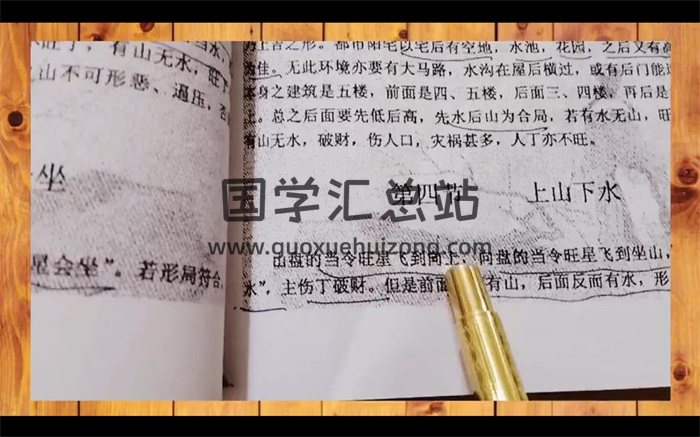 有山无水，旺
山不可形恶、逼压，
坐
星会坐”。若形局符合
上吉之形。都市阳宅以宅后有空地，水池，花园，之后又有高
为佳。无此环境亦要有大马路，水沟在屋后横过，或有后门能
本身之建筑是五楼，前面是四、五楼，后面三、四楼，再后是
上。总之后面要先低后高，先水后山为合局，若有水无山，旺
有山无水，破财，伤人口，灾祸甚多，人丁亦不旺。
第四节 上山下水
国学汇总站
www.guoxuehuizong.com
山盘的当令旺星飞到向上，向盘的当令旺星飞到坐山，
水”，主伤丁破财。但是前面 有山，后面反而有水，形